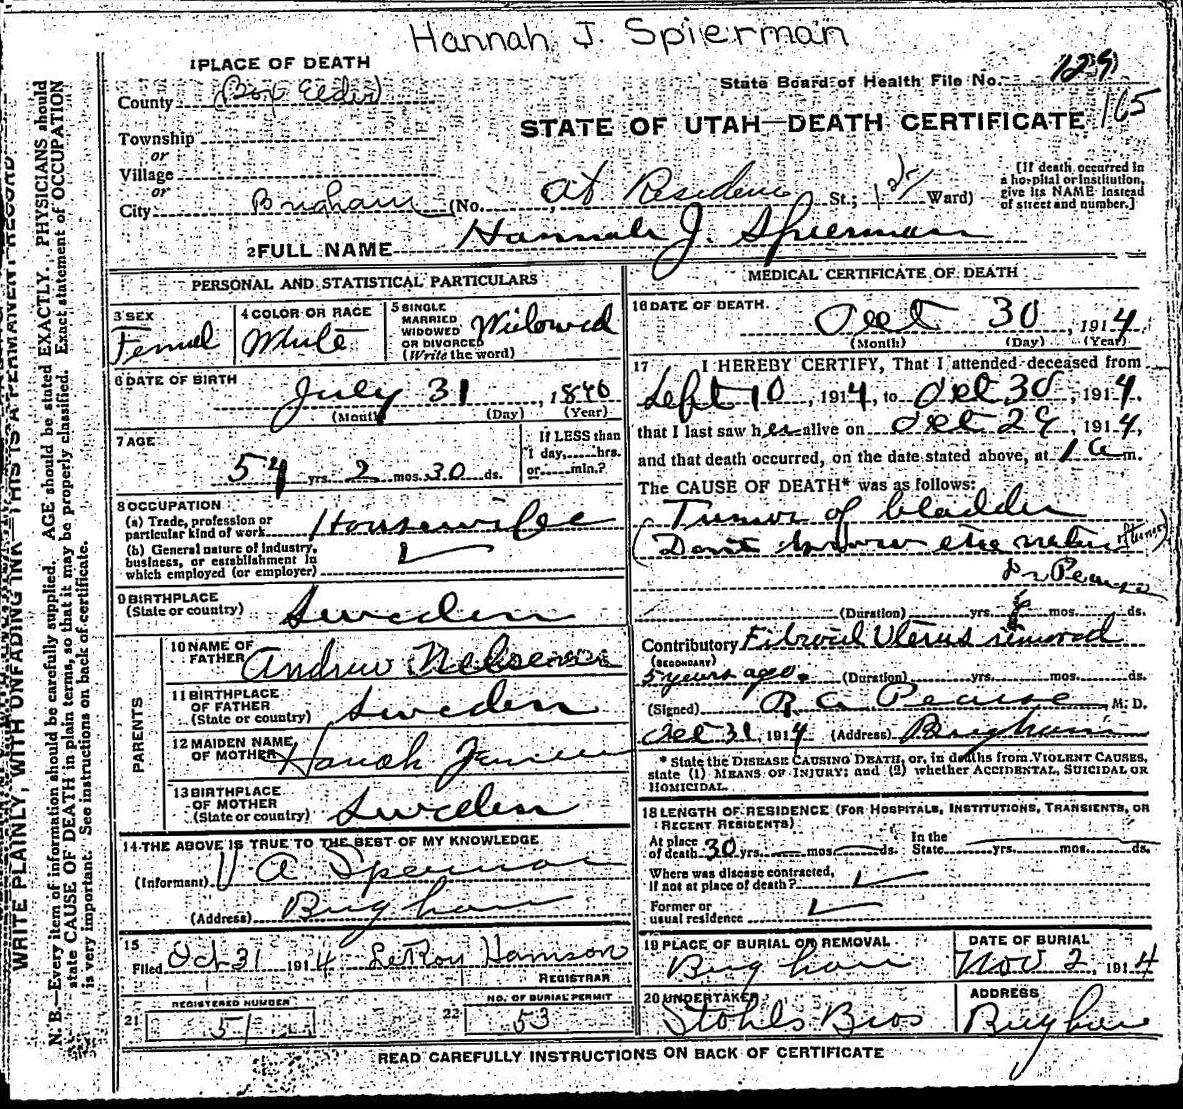 Hannah J. Spierman
1 PLACE OF DEATH
State Board of Health File No. 129
165
County (Box Elder)
STATE OF UTAH—DEATH CERTIFICATE
Township
or
Village
or
City Brigham (No. at Residence St.; 1st Ward)
[If death occurred in a hospital or institution, give its NAME instead of street and number.]
2 FULL NAME Hannah J. Spierman
PERSONAL AND STATISTICAL PARTICULARS
3 SEX
Femal
4 COLOR OR RACE
White
5 SINGLE MARRIED WIDOWED OR DIVORCED (Write the word)
Widowed
6 DATE OF BIRTH
July 31, 1840
(Month) (Day) (Year)
7 AGE
54 yrs. 2 mos. 30 ds.
If LESS than 1 day, hrs. or min.?
8 OCCUPATION
(a) Trade, profession or particular kind of work Housewife
(b) General nature of industry, business, or establishment in which employed (or employer)
9 BIRTHPLACE
(State or country) Sweden
PARENTS
10 NAME OF FATHER Andrew
11 BIRTHPLACE OF FATHER
(State or country) Sweden
12 MAIDEN NAME OF MOTHER Hanah
13 BIRTHPLACE OF MOTHER
(State or country) Sweden
14 THE ABOVE IS TRUE TO THE BEST OF MY KNOWLEDGE
(Informant) V A Spierman
(Address) Brigham
15
Filed Oct 31 1914 LeRoy Harrison
REGISTRAR
REGISTERED NUMBER
21 51
NO. OF BURIAL PERMIT
22 53
MEDICAL CERTIFICATE OF DEATH
16 DATE OF DEATH.
Oct 30, 1914
(Month) (Day) (Year)
17 I HEREBY CERTIFY, That I attended deceased from
Sept 10, 1914, to Oct 30, 1914,
that I last saw her alive on Oct 29, 1914,
and that death occurred, on the date stated above, at 1 a m.
The CAUSE OF DEATH* was as follows:
Tumor of bladder
(Don't know the nature of tumor)
Dr Pearse
(Duration) yrs. mos. ds.
Contributory Fibroid Uterus removed
(SECONDARY)
5 years ago. (Duration) yrs. mos. ds.
(Signed) R A Pearse, M. D.
Oct 31, 1914 (Address) Brigham
* State the DISEASE CAUSING DEATH, or, in deaths from VIOLENT CAUSES, state (1) MEANS OF INJURY; and (2) whether ACCIDENTAL, SUICIDAL OR HOMICIDAL.
18 LENGTH OF RESIDENCE (FOR HOSPITALS, INSTITUTIONS, TRANSIENTS, OR RECENT RESIDENTS)
At place of death 30 yrs. mos. ds. In the State yrs. mos. ds.
Where was disease contracted, if not at place of death?
Former or usual residence
19 PLACE OF BURIAL OR REMOVAL
Brigham
DATE OF BURIAL
Nov 2, 1914
20 UNDERTAKER
Stohls Bros
ADDRESS
Brigham
READ CAREFULLY INSTRUCTIONS ON BACK OF CERTIFICATE
WRITE PLAINLY, WITH UNFADING INK—THIS IS A PERMANENT RECORD
N. B.—Every item of information should be carefully supplied. AGE should be stated EXACTLY. PHYSICIANS should
state CAUSE OF DEATH in plain terms, so that it may be properly classified. Exact statement of OCCUPATION
is very important. See instructions on back of certificate.